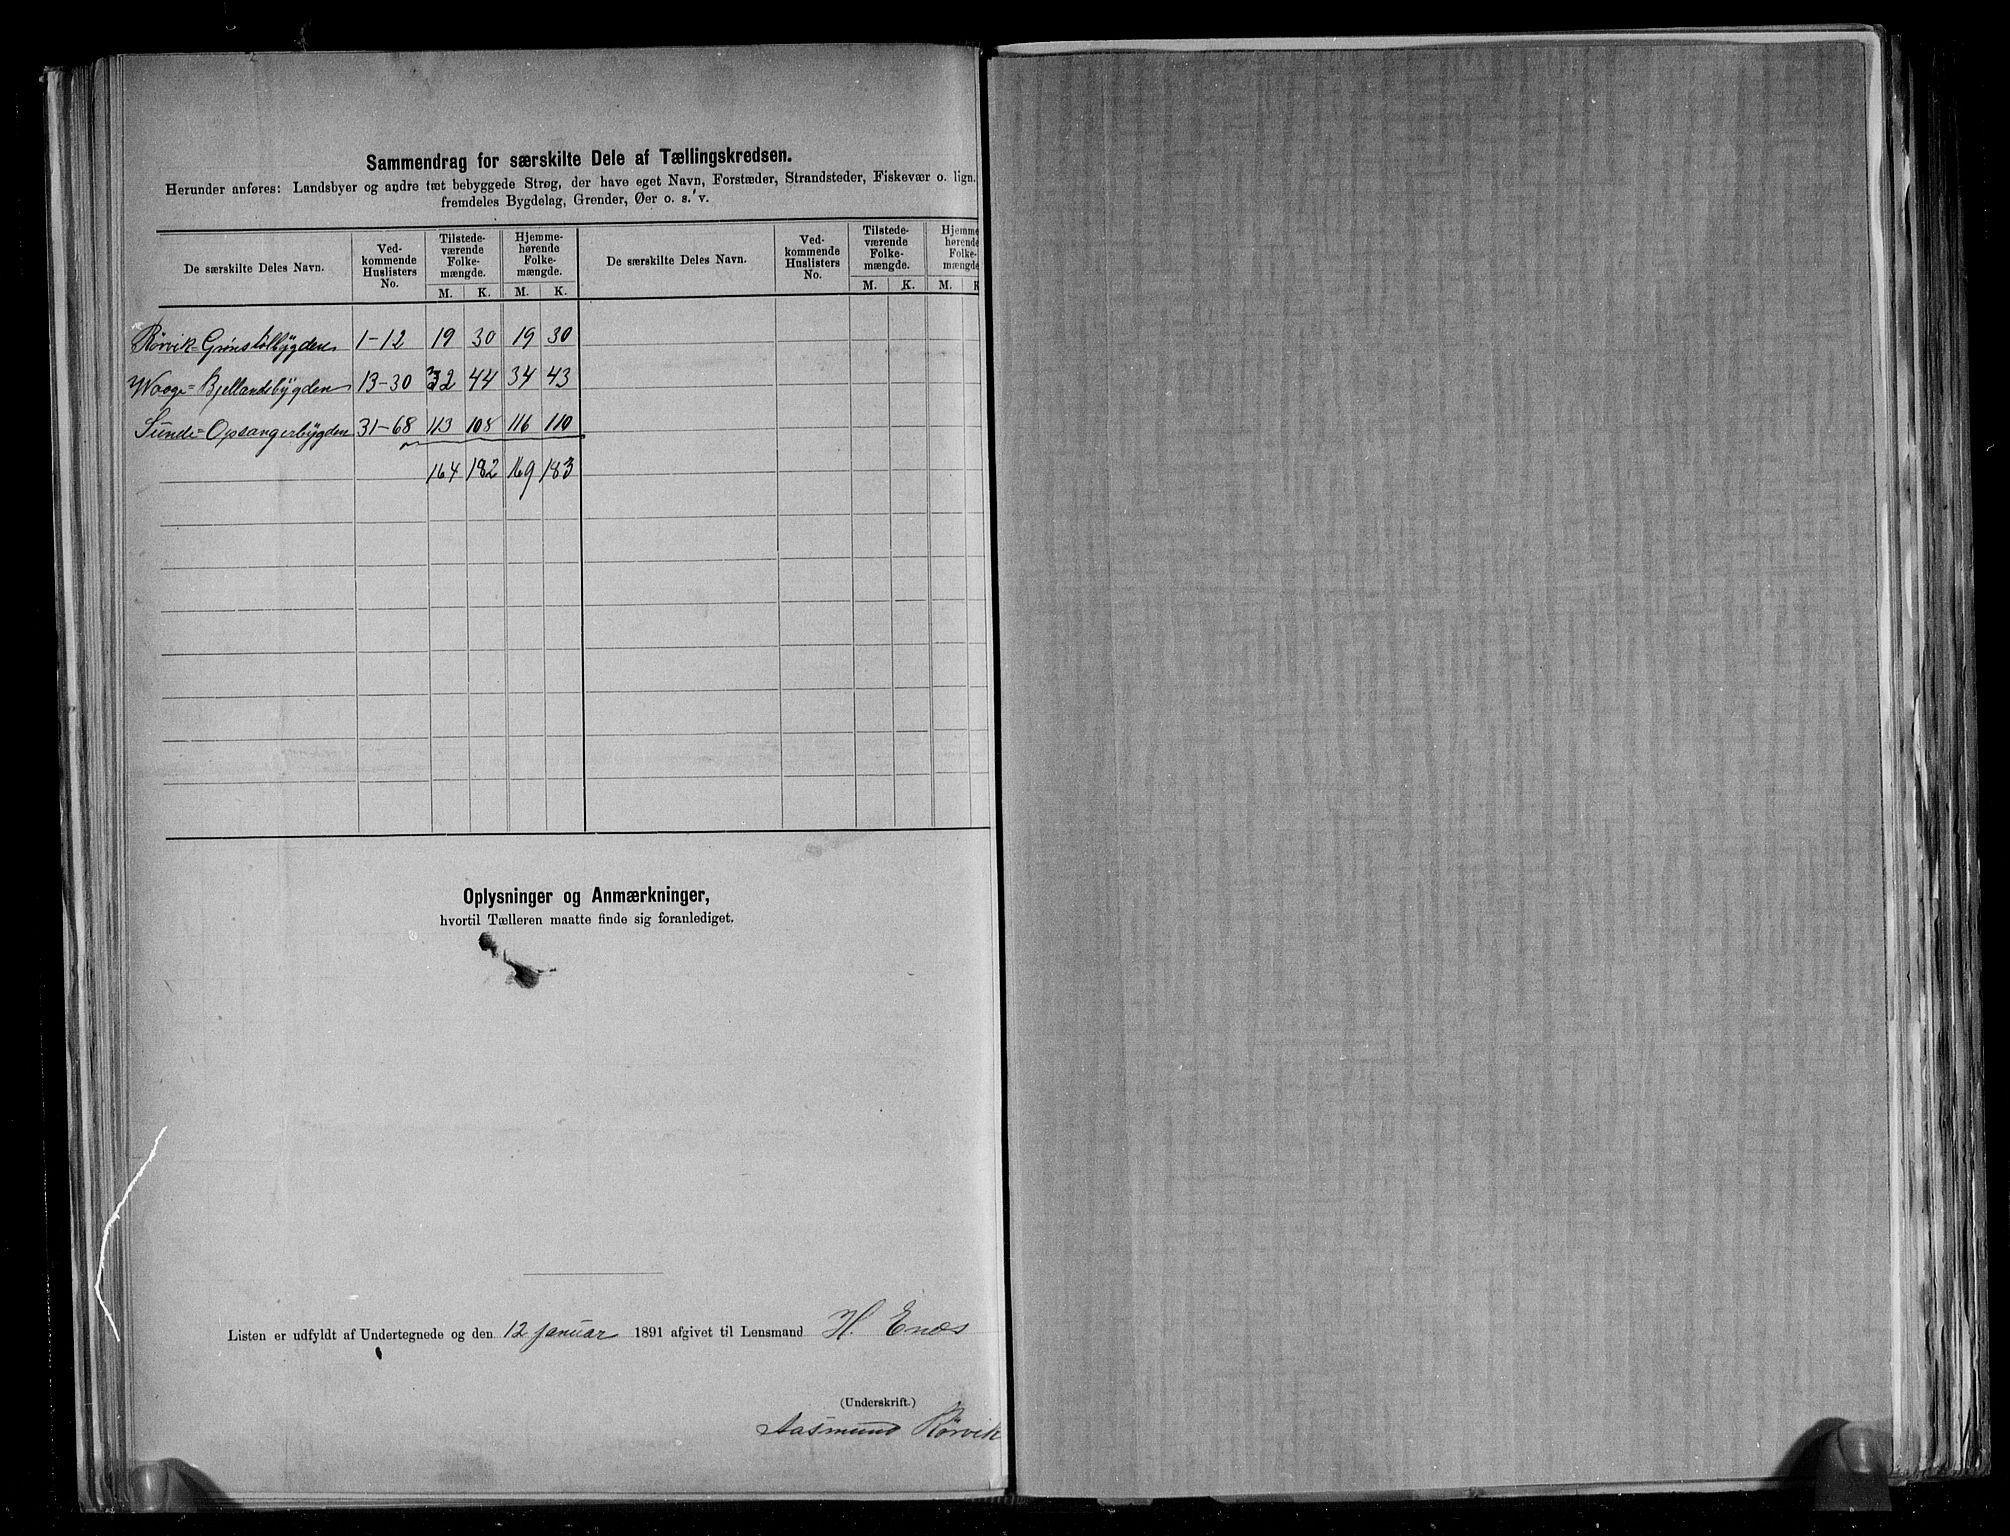 Sammendrag for særskilte Dele af Tællingskredsen.
Herunder anføres: Landsbyer og andre tæt bebyggede Strøg, der have eget Navn, Forstæder, Strandsteder, Fiskevær o. lign.
fremdeles Bygdelag, Grender, Øer o. s. v.
De særskilte Deles Navn. Ved-kommende Huslisters No. Tilstede-værende Folke-mængde. Hjemme-hørende Folke-mængde. De særskilte Deles Navn. Ved-kommende Huslisters No. Tilstede-værende Folke-mængde. Hjemme hørende Folke-mængde
M. K. M. K. M. K. M. K
Rørvik=Grønstølbygden 1-12 19 30 19 30
Waage=Bjellandsbygden 13-30 32 44 34 43
Sunde=Opsangerbygden 31-68 113 108 116 110
164 182 169 183
Oplysninger og Anmærkninger,
hvortil Tælleren maatte finde sig foranlediget.
Listen er udfyldt af Undertegnede og den 12 januar 1891 afgivet til Lensmand H. Enæs
(Underskrift.)
Aasmund Rørvik